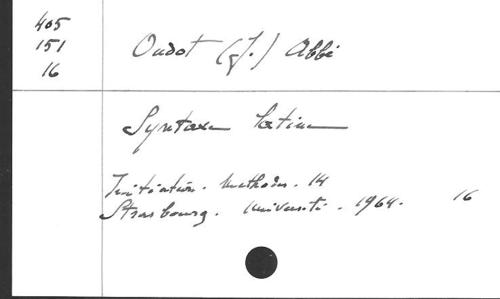 405
151
16
Oudot (J.) Abbé
Syntaxe latine
Initiation. Méthodes. 14
Strasbourg. Université. 1964. 16